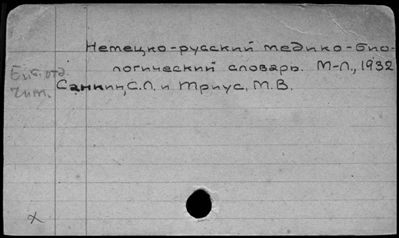 Немецко-русский медико-био-
логический словарь. М-Л., 1932
Биб. отд.
Саккин, С.Л. и Триус, М.В.
Чит.
х